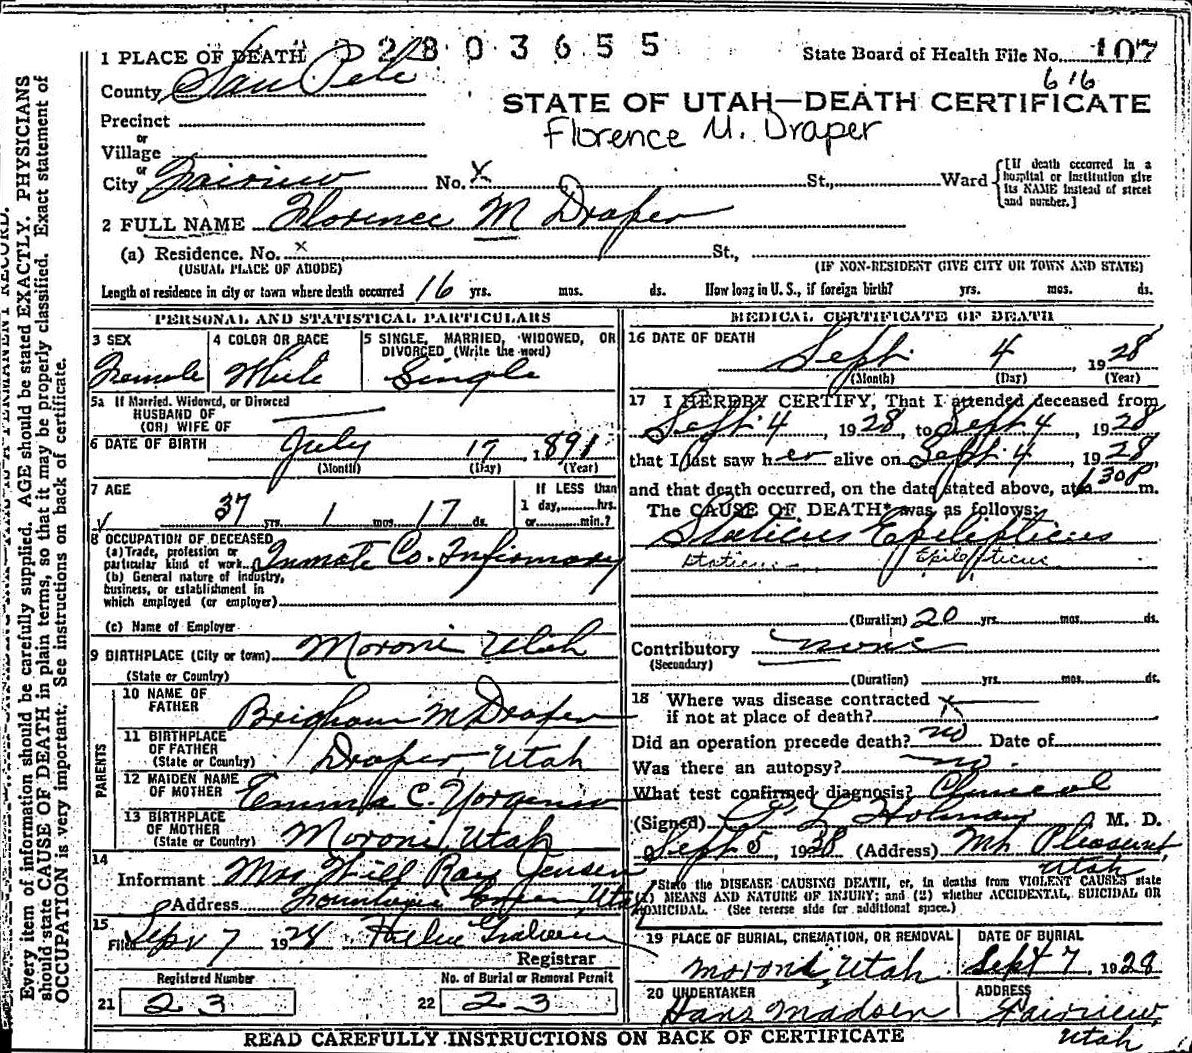 2803655
1 PLACE OF DEATH
State Board of Health File No. 107
616
County San Pete
STATE OF UTAH—DEATH CERTIFICATE
Precinct
Florence M. Draper
or
Village
or
City Fairview No. x St., Ward
[If death occurred in a hospital or institution give its NAME instead of street and number.]
2 FULL NAME Florence M Draper
(a) Residence. No. x St.,
(USUAL PLACE OF ABODE) (IF NON-RESIDENT GIVE CITY OR TOWN AND STATE)
Length of residence in city or town where death occurred 16 yrs. mos. ds. How long in U. S., if foreign birth? yrs. mos. ds.
PERSONAL AND STATISTICAL PARTICULARS
3 SEX
Female
4 COLOR OR RACE
White
5 SINGLE, MARRIED, WIDOWED, OR DIVORCED (Write the word)
Single
5a If Married, Widowed, or Divorced
HUSBAND OF
(OR) WIFE OF
6 DATE OF BIRTH July 17 1891
(Month) (Day) (Year)
7 AGE
37 yrs. 1 mos. 17 ds.
If LESS than
1 day, hrs.
or min.?
8 OCCUPATION OF DECEASED
(a) Trade, profession or
particular kind of work Inmate Co. Infirmary
(b) General nature of industry,
business, or establishment in
which employed (or employer)
(c) Name of Employer
9 BIRTHPLACE (City or town) Moroni Utah
(State or Country)
PARENTS
10 NAME OF
FATHER Brigham M Draper
11 BIRTHPLACE
OF FATHER Draper, Utah
(State or Country)
12 MAIDEN NAME
OF MOTHER Emma C. Yorgensen
13 BIRTHPLACE
OF MOTHER Moroni, Utah
(State or Country)
14
Informant Mrs Will Ray Jensen
Address Fountain Green, Utah
15
Filed Sept 7 1928
Registrar
Registered Number
21 23
No. of Burial or Removal Permit
22 23
MEDICAL CERTIFICATE OF DEATH
16 DATE OF DEATH
Sept. 4 1928
(Month) (Day) (Year)
17 I HEREBY CERTIFY, That I attended deceased from
Sept 4, 1928, to Sept 4, 1928,
that I last saw her alive on Sept. 4, 1928,
and that death occurred, on the date stated above, at 1 30 P m.
The CAUSE OF DEATH* was as follows:
Staticus Epilepticus
Staticus Epilepticus
(Duration) 20 yrs. mos. ds.
Contributory none
(Secondary)
(Duration) yrs. mos. ds.
18 Where was disease contracted
if not at place of death? x
Did an operation precede death? no Date of
Was there an autopsy? no.
What test confirmed diagnosis? Clinical
(Signed) Holman, M. D.
Sept 5, 1928 (Address) Mt. Pleasant, Utah
*State the DISEASE CAUSING DEATH, or, in deaths from VIOLENT CAUSES state
(1) MEANS AND NATURE OF INJURY; and (2) whether ACCIDENTAL, SUICIDAL OR
HOMICIDAL. (See reverse side for additional space.)
19 PLACE OF BURIAL, CREMATION, OR REMOVAL
Moroni, Utah
DATE OF BURIAL
Sept 7 1928
20 UNDERTAKER
Hans Madsen
ADDRESS
Fairview, Utah
READ CAREFULLY INSTRUCTIONS ON BACK OF CERTIFICATE
PERMANENT RECORD.
Every item of information should be carefully supplied. AGE should be stated EXACTLY. PHYSICIANS
should state CAUSE OF DEATH in plain terms, so that it may be properly classified. Exact statement of
OCCUPATION is very important. See instructions on back of certificate.